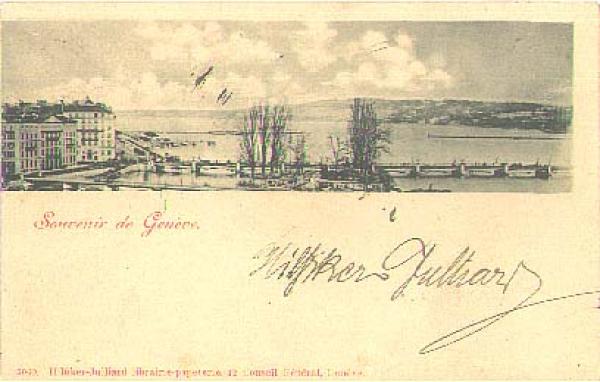 Souvenir de Genève.
Hilfiker Julliard
Hilfiker-Julliard librairie-papeterie, 12 Conseil Général, Genève.